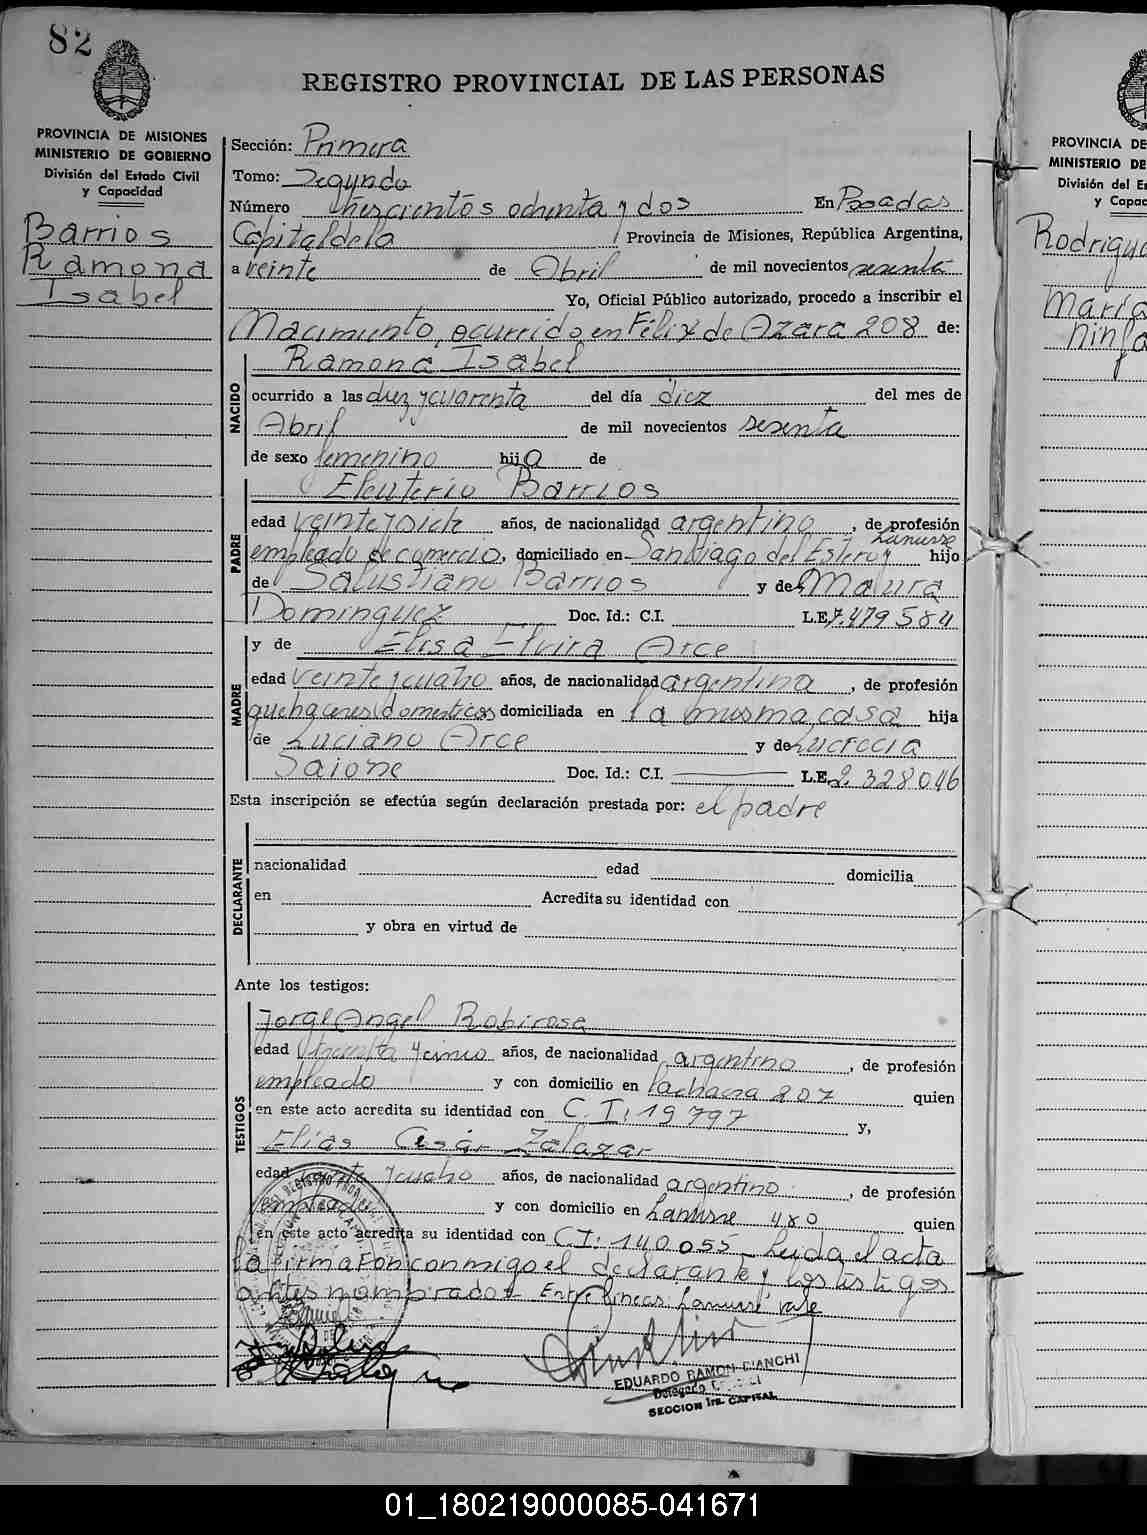 82
REGISTRO PROVINCIAL DE LAS PERSONAS
PROVINCIA DE MISIONES
MINISTERIO DE GOBIERNO
División del Estado Civil
y Capacidad
Barrios
Ramona
Isabel
Sección: Primera
Tomo: Segundo
Número trescientos ochenta y dos En Posadas
Capital de la Provincia de Misiones, República Argentina,
a veinte de Abril de mil novecientos sesenta
Yo, Oficial Público autorizado, procedo a inscribir el
Nacimiento, ocurrido en Félix de Azara 208 de:
NACIDO
Ramona Isabel
ocurrido a las diez y cuarenta del día diez del mes de
Abril de mil novecientos sesenta
de sexo femenino hija de
PADRE
Eleuterio Barrios
edad veinte y siete años, de nacionalidad argentino, de profesión
Lanusse
empleado de comercio, domiciliado en Santiago del Estero y hijo
de Salustiano Barrios y de Maura
Dominguez Doc. Id.: C.I. L.E. 7.479584
MADRE
y de Elisa Elvira Arce
edad veinte y cuatro años, de nacionalidad argentina, de profesión
quehaceres domesticos domiciliada en la misma casa hija
de Luciano Arce y de Lucrecia
Saione Doc. Id.: C.I. L.E. 2.328046
Esta inscripción se efectúa según declaración prestada por: el padre
DECLARANTE
nacionalidad edad domicilia
en Acredita su identidad con
y obra en virtud de
Ante los testigos:
TESTIGOS
Jorge Angel Robirosa
edad treinta y cinco años, de nacionalidad argentino, de profesión
empleado y con domicilio en Lachara 207 quien
en este acto acredita su identidad con C.I: 19797 y,
Elias Cesár Zalazar
edad y cuatro años, de nacionalidad argentino, de profesión
empleado y con domicilio en Lanusse 480 quien
en este acto acredita su identidad con C.I: 140055 Leida el acta
la firmaron conmigo el declarante y los testigos
antes nombrados Entre lineas: Lanusse, vale
EDUARDO RAMON BIANCHI
SECCION 1ra. CAPITAL
PROVINCIA DE
MINISTERIO DE
División del Es
y Capac
Rodrigue
María
Ninfa
01_180219000085-041671